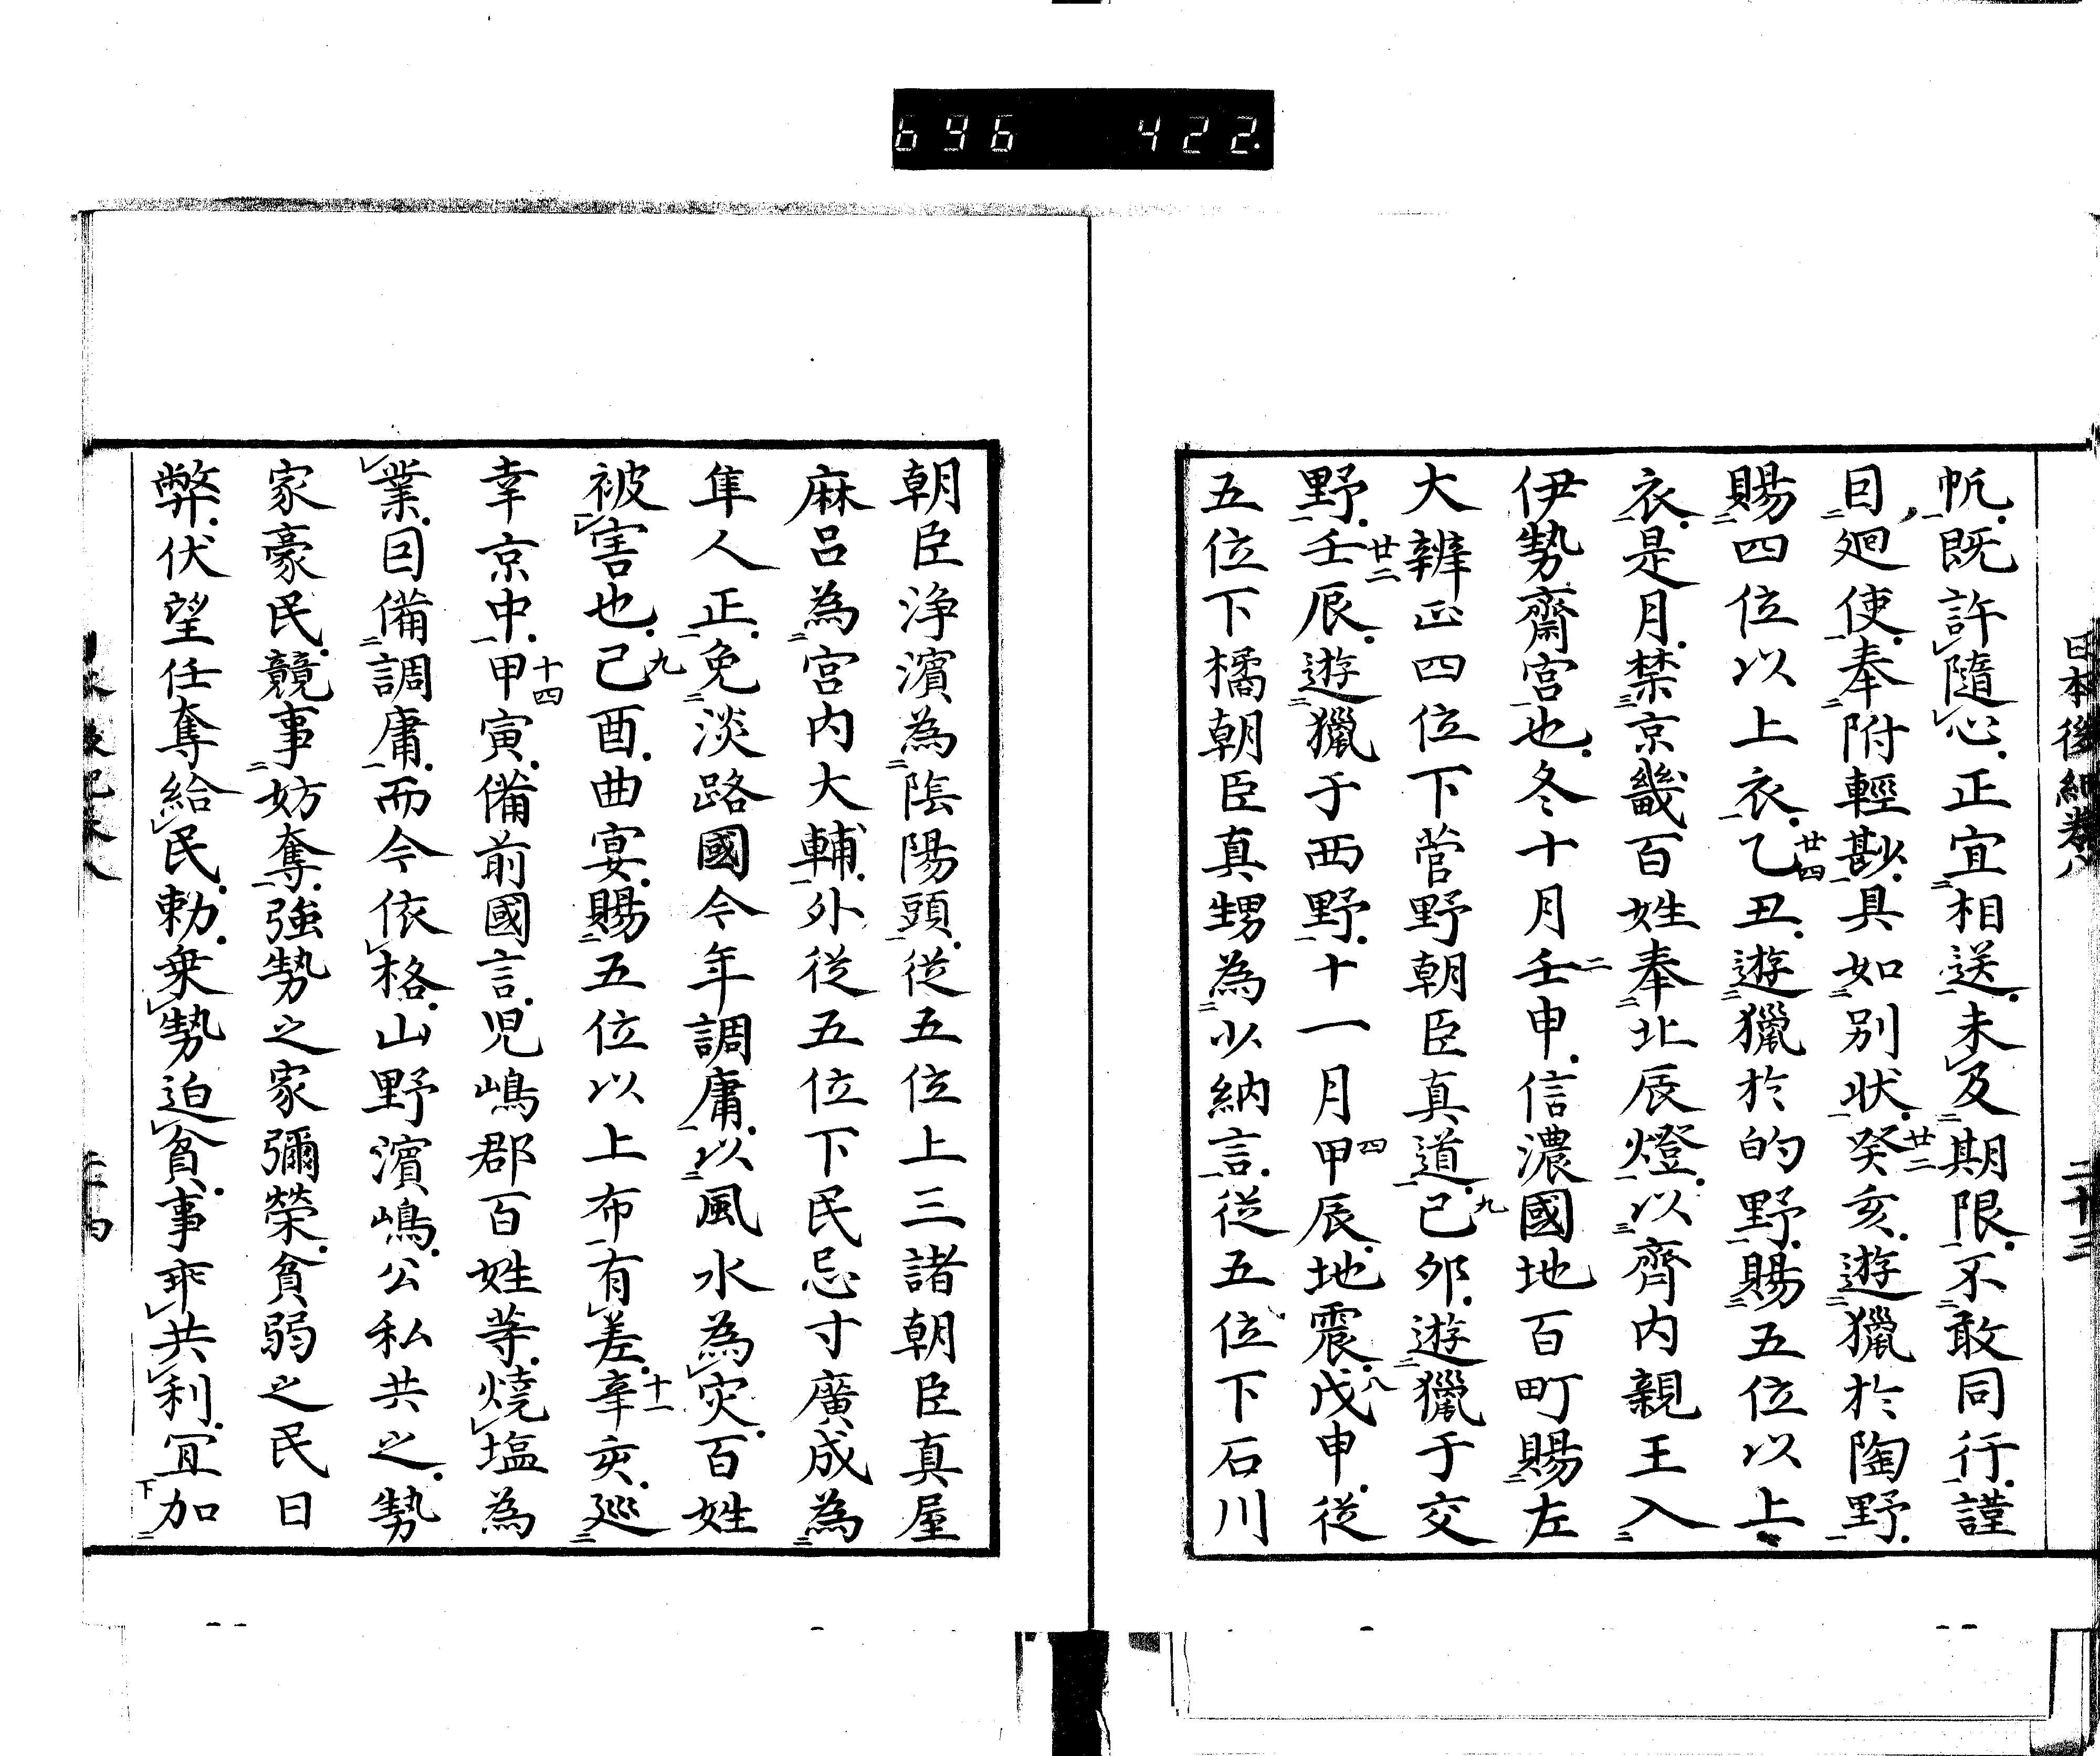 696 422
日本後紀卷八 二十三
帆既許隨心正宜相送未及期限不敢同行謹
因廻使奉附輕尠具如別状癸亥遊獵於陶野
賜四位以上衣乙丑遊獵於的野賜五位以上
衣是月禁京畿百姓奉北辰燈以齊内親王入
伊勢齋宮也冬十月壬申信濃國地百町賜左
大辨正四位下菅野朝臣真道己卯遊獵于交
野壬辰遊獵于西野十一月甲辰地震戊申從
五位下橘朝臣真甥為少納言從五位下石川
朝臣浄濱為陰陽頭從五位上三諸朝臣真屋
麻呂為宮内大輔外從五位下民忌寸廣成為
隼人正免淡路國今年調庸以風水為灾百姓
被害也己酉曲宴賜五位以上布有差辛亥巡
幸京中甲寅備前國言児嶋郡百姓等燒塩為
業因備調庸而今依格山野濱嶋公私共之勢
家豪民競事妨奪強勢之家彌榮貧弱之民日
弊伏望任奪給民勅乗勢迫貧事乖共利宜加